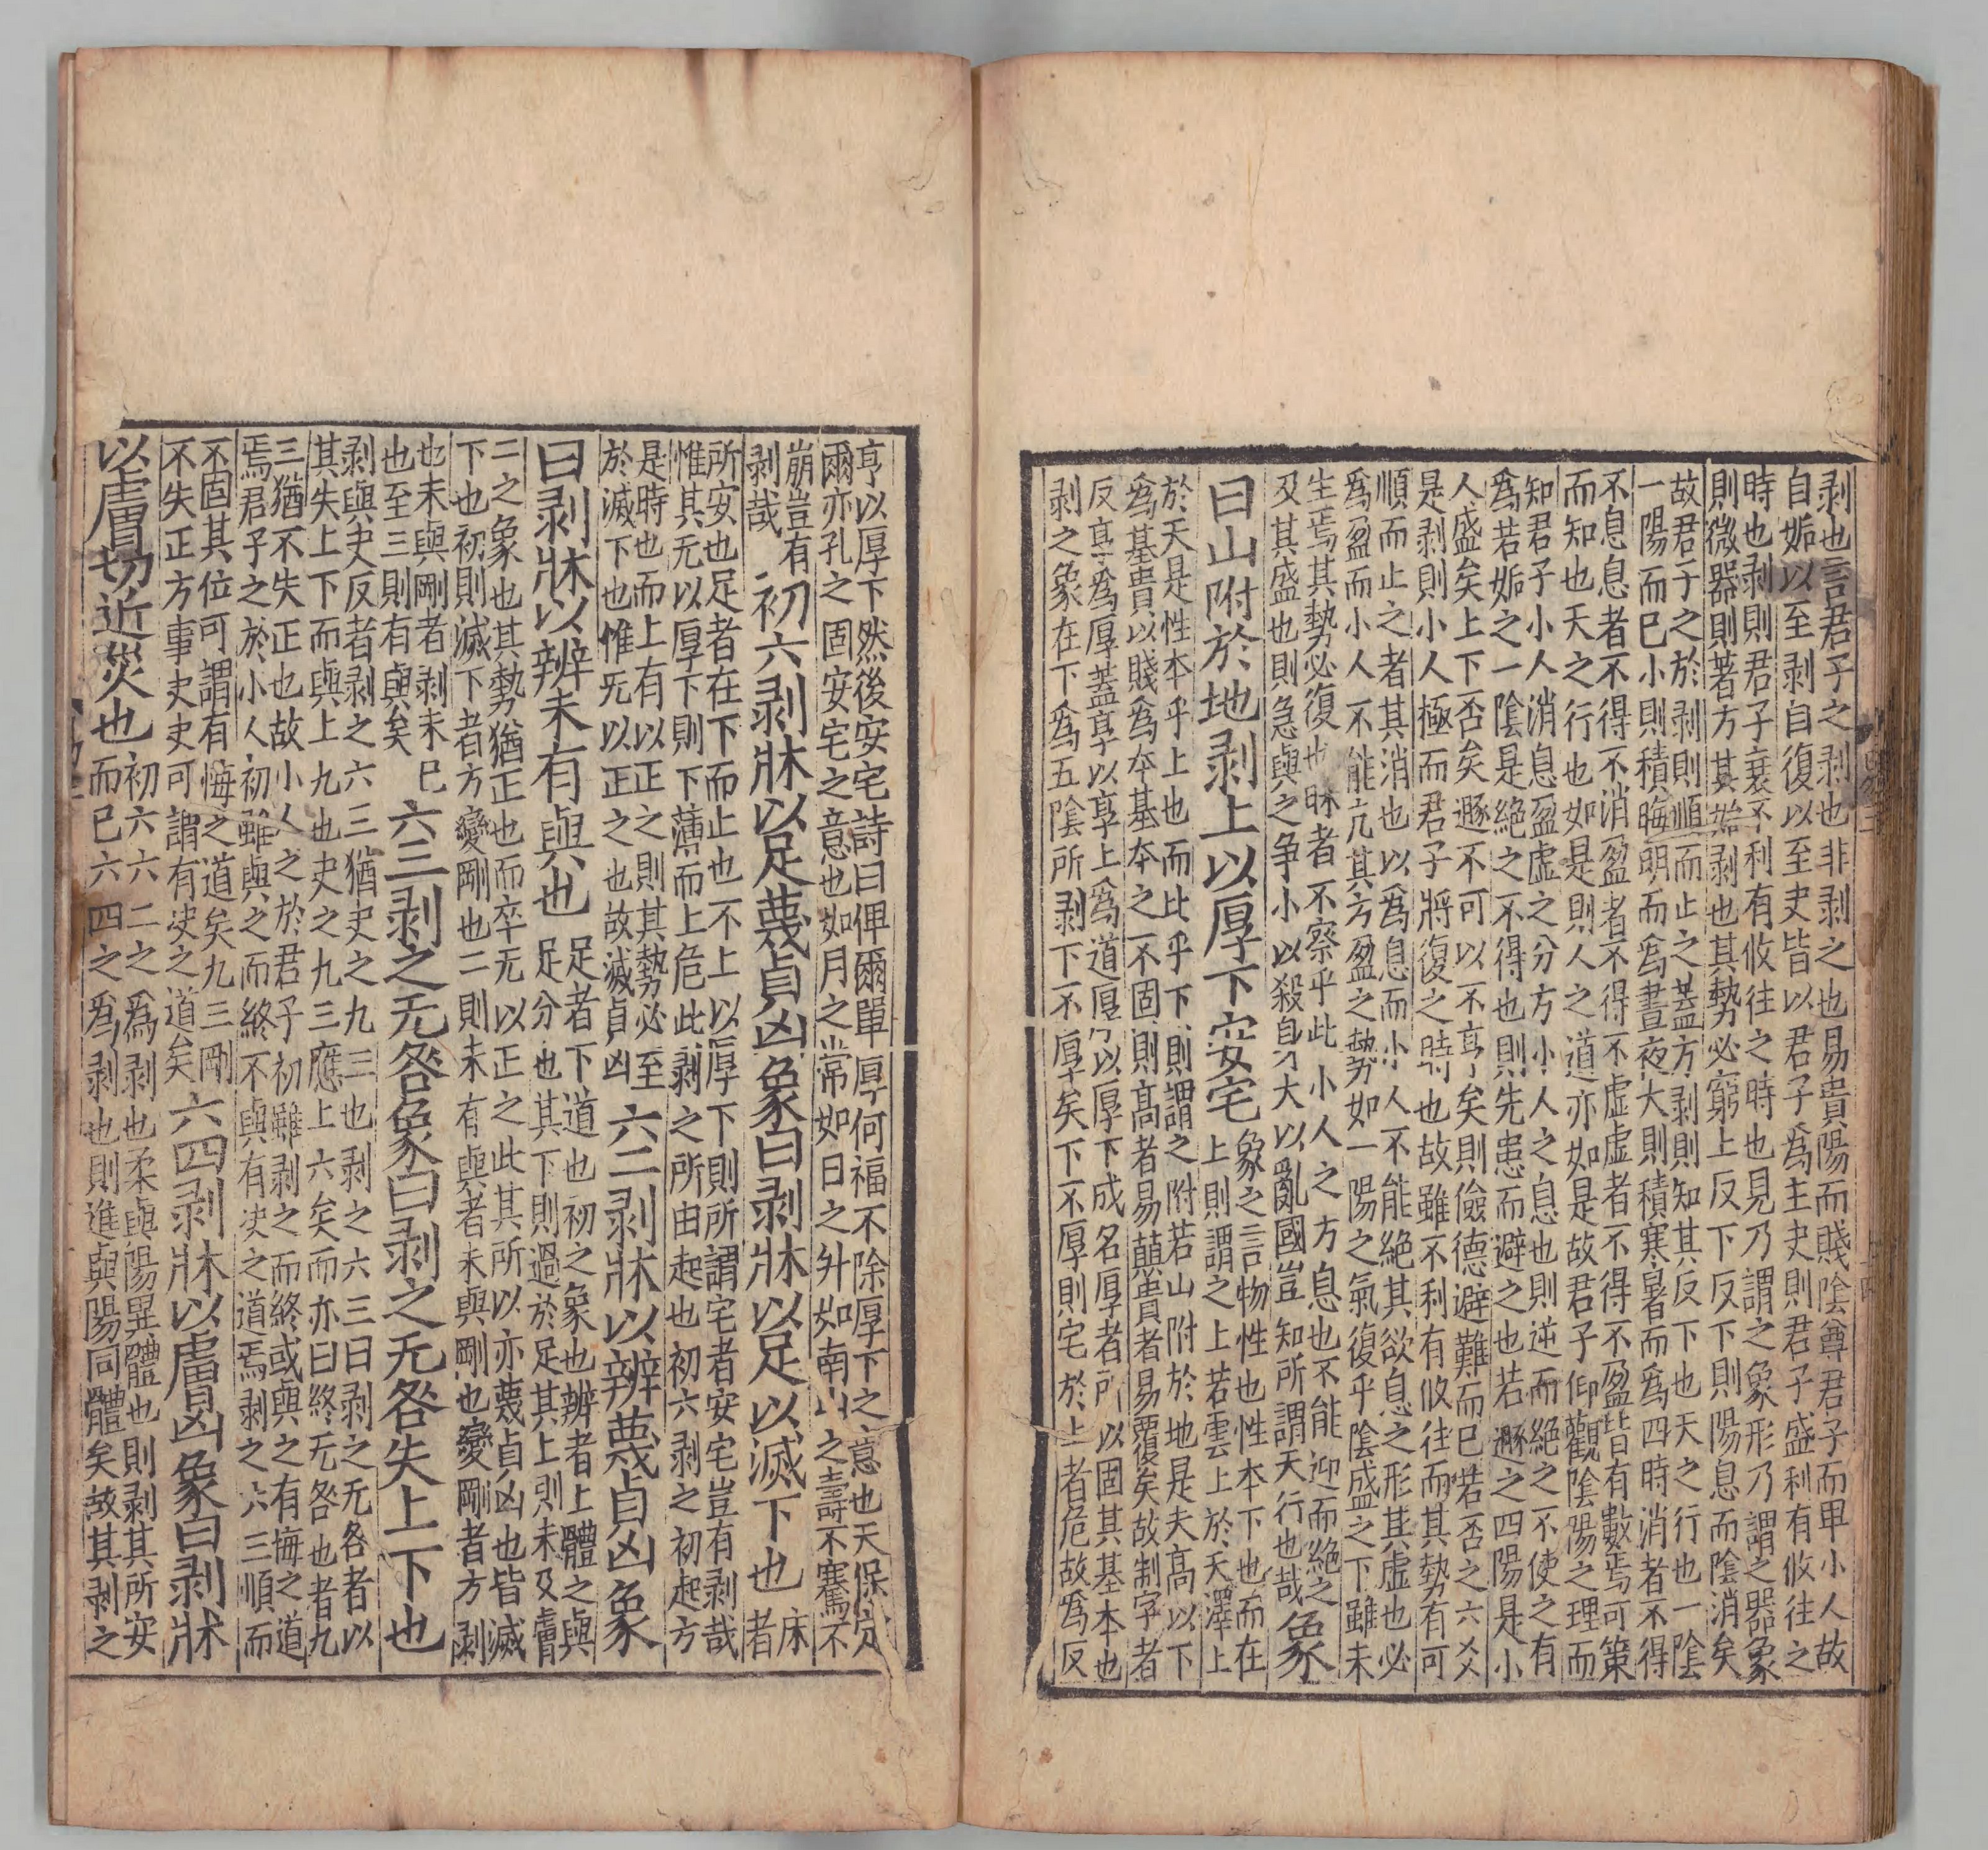 剥也言君子之剥也非剥之也易貴陽而賤陰尊君子而卑小人故
自姤以至剥自復以至夬皆以君子爲主夬則君子盛利有攸往之
時也剥則君子衰不利有攸往之時也見乃謂之象形乃謂之器象
則微器則著方其始剥也其勢必窮上反下反下則陽息而陰消矣
故君子之於剥則順而止之蓋方剥則知其反下也天之行也一陰
一陽而已小則積晦明而爲晝夜大則積寒暑而爲四時消者不得
不息息者不得不消盈者不得不虛虛者不得不盈皆有數焉可策
而知也天之行也如是則人之道亦如是故君子仰觀陰陽之理而
知君子小人消息盈虛之分方小人之息也則逆而絶之不使之有
爲若姤之一陰是絶之不得也則先患而避之也若遯之四陽是小
人盛矣上下否矣遯不可以不亨矣則儉德避難而已若否之六爻
是剥則小人極而君子將復之時也故雖不利有攸往而其勢有可
順而止之者其消也以爲息而小人不能絶其欲息之形其虛也必
爲盈而小人不能亢其方盈之勢如一陽之氣復乎陰盛之下雖未
生焉其勢必復也昧者不察乎此小人之方息也不能迎而絶之
及其盛也則急與之争小以殺身大以亂國豈知所謂天行也哉象
曰山附於地剥上以厚下安宅
象之言物性也性本下也而在
上則謂之上若雲上於天澤上
於天是性本乎上也而比乎下則謂之附若山附於地是夫高以下
爲基貴以賤爲本基本之不固則高者易顛貴者易覆矣故制字者
反亨爲厚蓋亨以享上爲道厚以厚下成名厚者所以固其基本也
剥之象在下爲五陰所剥下不厚矣下不厚則宅於上者危故爲反
亨以厚下然後安宅詩曰俾爾單厚何福不除厚下之意也天保定
爾亦孔之固安宅之意也如月之常如日之升如南山之壽不騫不
崩豈有
剥哉
初六剥牀以足蔑貞凶象曰剥牀以足以滅下也
床
者
所安也足者在下而止也不上以厚下則所謂宅者安宅豈有剥哉
惟其无以厚下則下薄而上危此剥之所由起也初六剥之初起方
是時也而上有以正之則其勢必至
於滅下也惟旡以正之也故滅貞凶
六二剥牀以辨蔑貞凶象
曰剥牀以辨未有與也
足者下道也初之象也辨者上體之與
足分也其下則過於足其上則未及膚
二之象也其勢猶正也而卒无以正之此其所以亦蔑貞凶也皆滅
下也初則滅下者方變剛也二則未有與者未與剛也變剛者方剥
也未與剛者剥未已
也至三則有與矣
六三剥之无咎象曰剥之无咎失上下也
剥與夬反者剥之六三猶夬之九三也剥之六三曰剥之无咎者以
其失上下而與上九也夬之九三應上六矣而亦曰終无咎也者九
三猶不失正也故小人之於君子初雖剥之而終或與之有悔之道
焉君子之於小人初雖與之而終不與有决之道焉剥之六三順而
不固其位可謂有悔之道矣九三剛
不失正方事夬夬可謂有决之道矣
六四剥牀以膚凶象曰剥牀
以膚切近災也
初六六二之爲剥也柔與陽異體也則剥其所安
而已六四之爲剥也則進與陽同體矣故其剥之